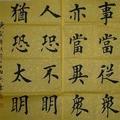 事當從衆
亦當異衆
人恐不明
猶恐太明